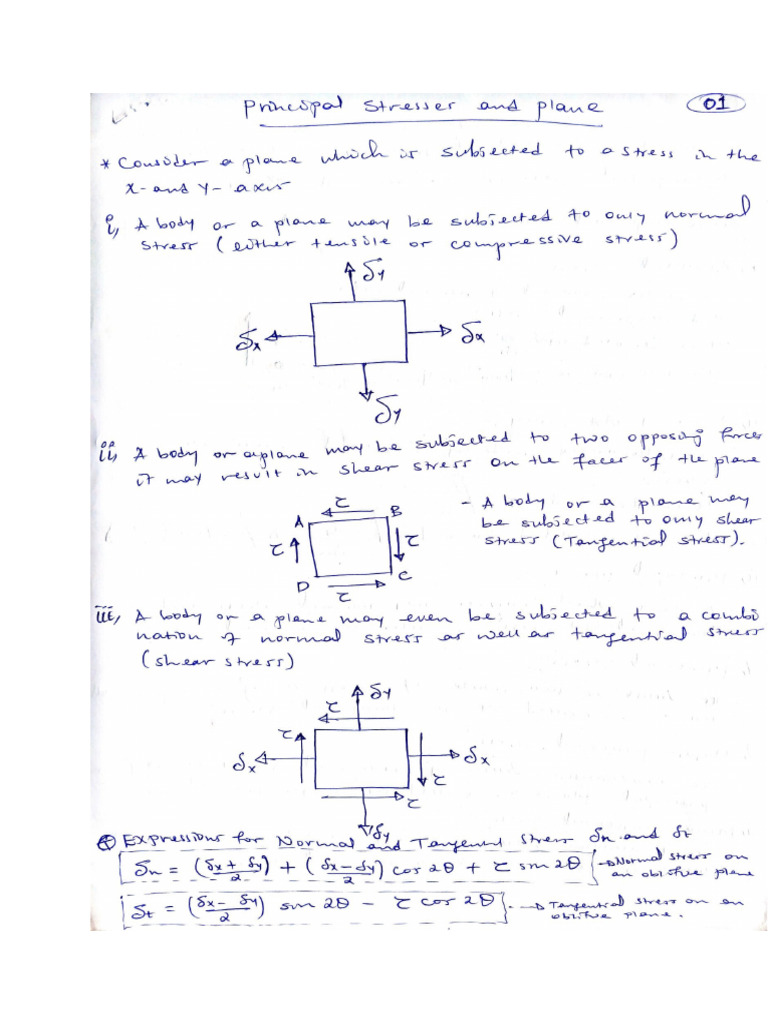 Principal Stresser and plane 01
* Consider a plane which is subjected to a stress in the
X- and Y- axis
i, A body or a plane may be subjected to only normal
stress (either tensile or compressive stress)
δy
δx δx
δy
ii, A body or a plane may be subjected to two opposing forces
it may result in shear stress on the faces of the plane
τ
A B
τ τ
D C
τ
- A body or a plane may
be subjected to only shear
stress (Tangential stress).
iii, A body or a plane may even be subjected to a combi
nation of normal stress as well as tangential stress
(shear stress)
τ δy
τ
δx δx
τ
τ
δy
Expressions for Normal and Tangent Stress δn and δt
δn = (δx + δy)/2 + (δx - δy)/2 cos 2θ + τ sin 2θ → Normal stress on
an oblique plane
δt = (δx - δy)/2 sin 2θ - τ cos 2θ → Tangential stress on an
oblique plane.